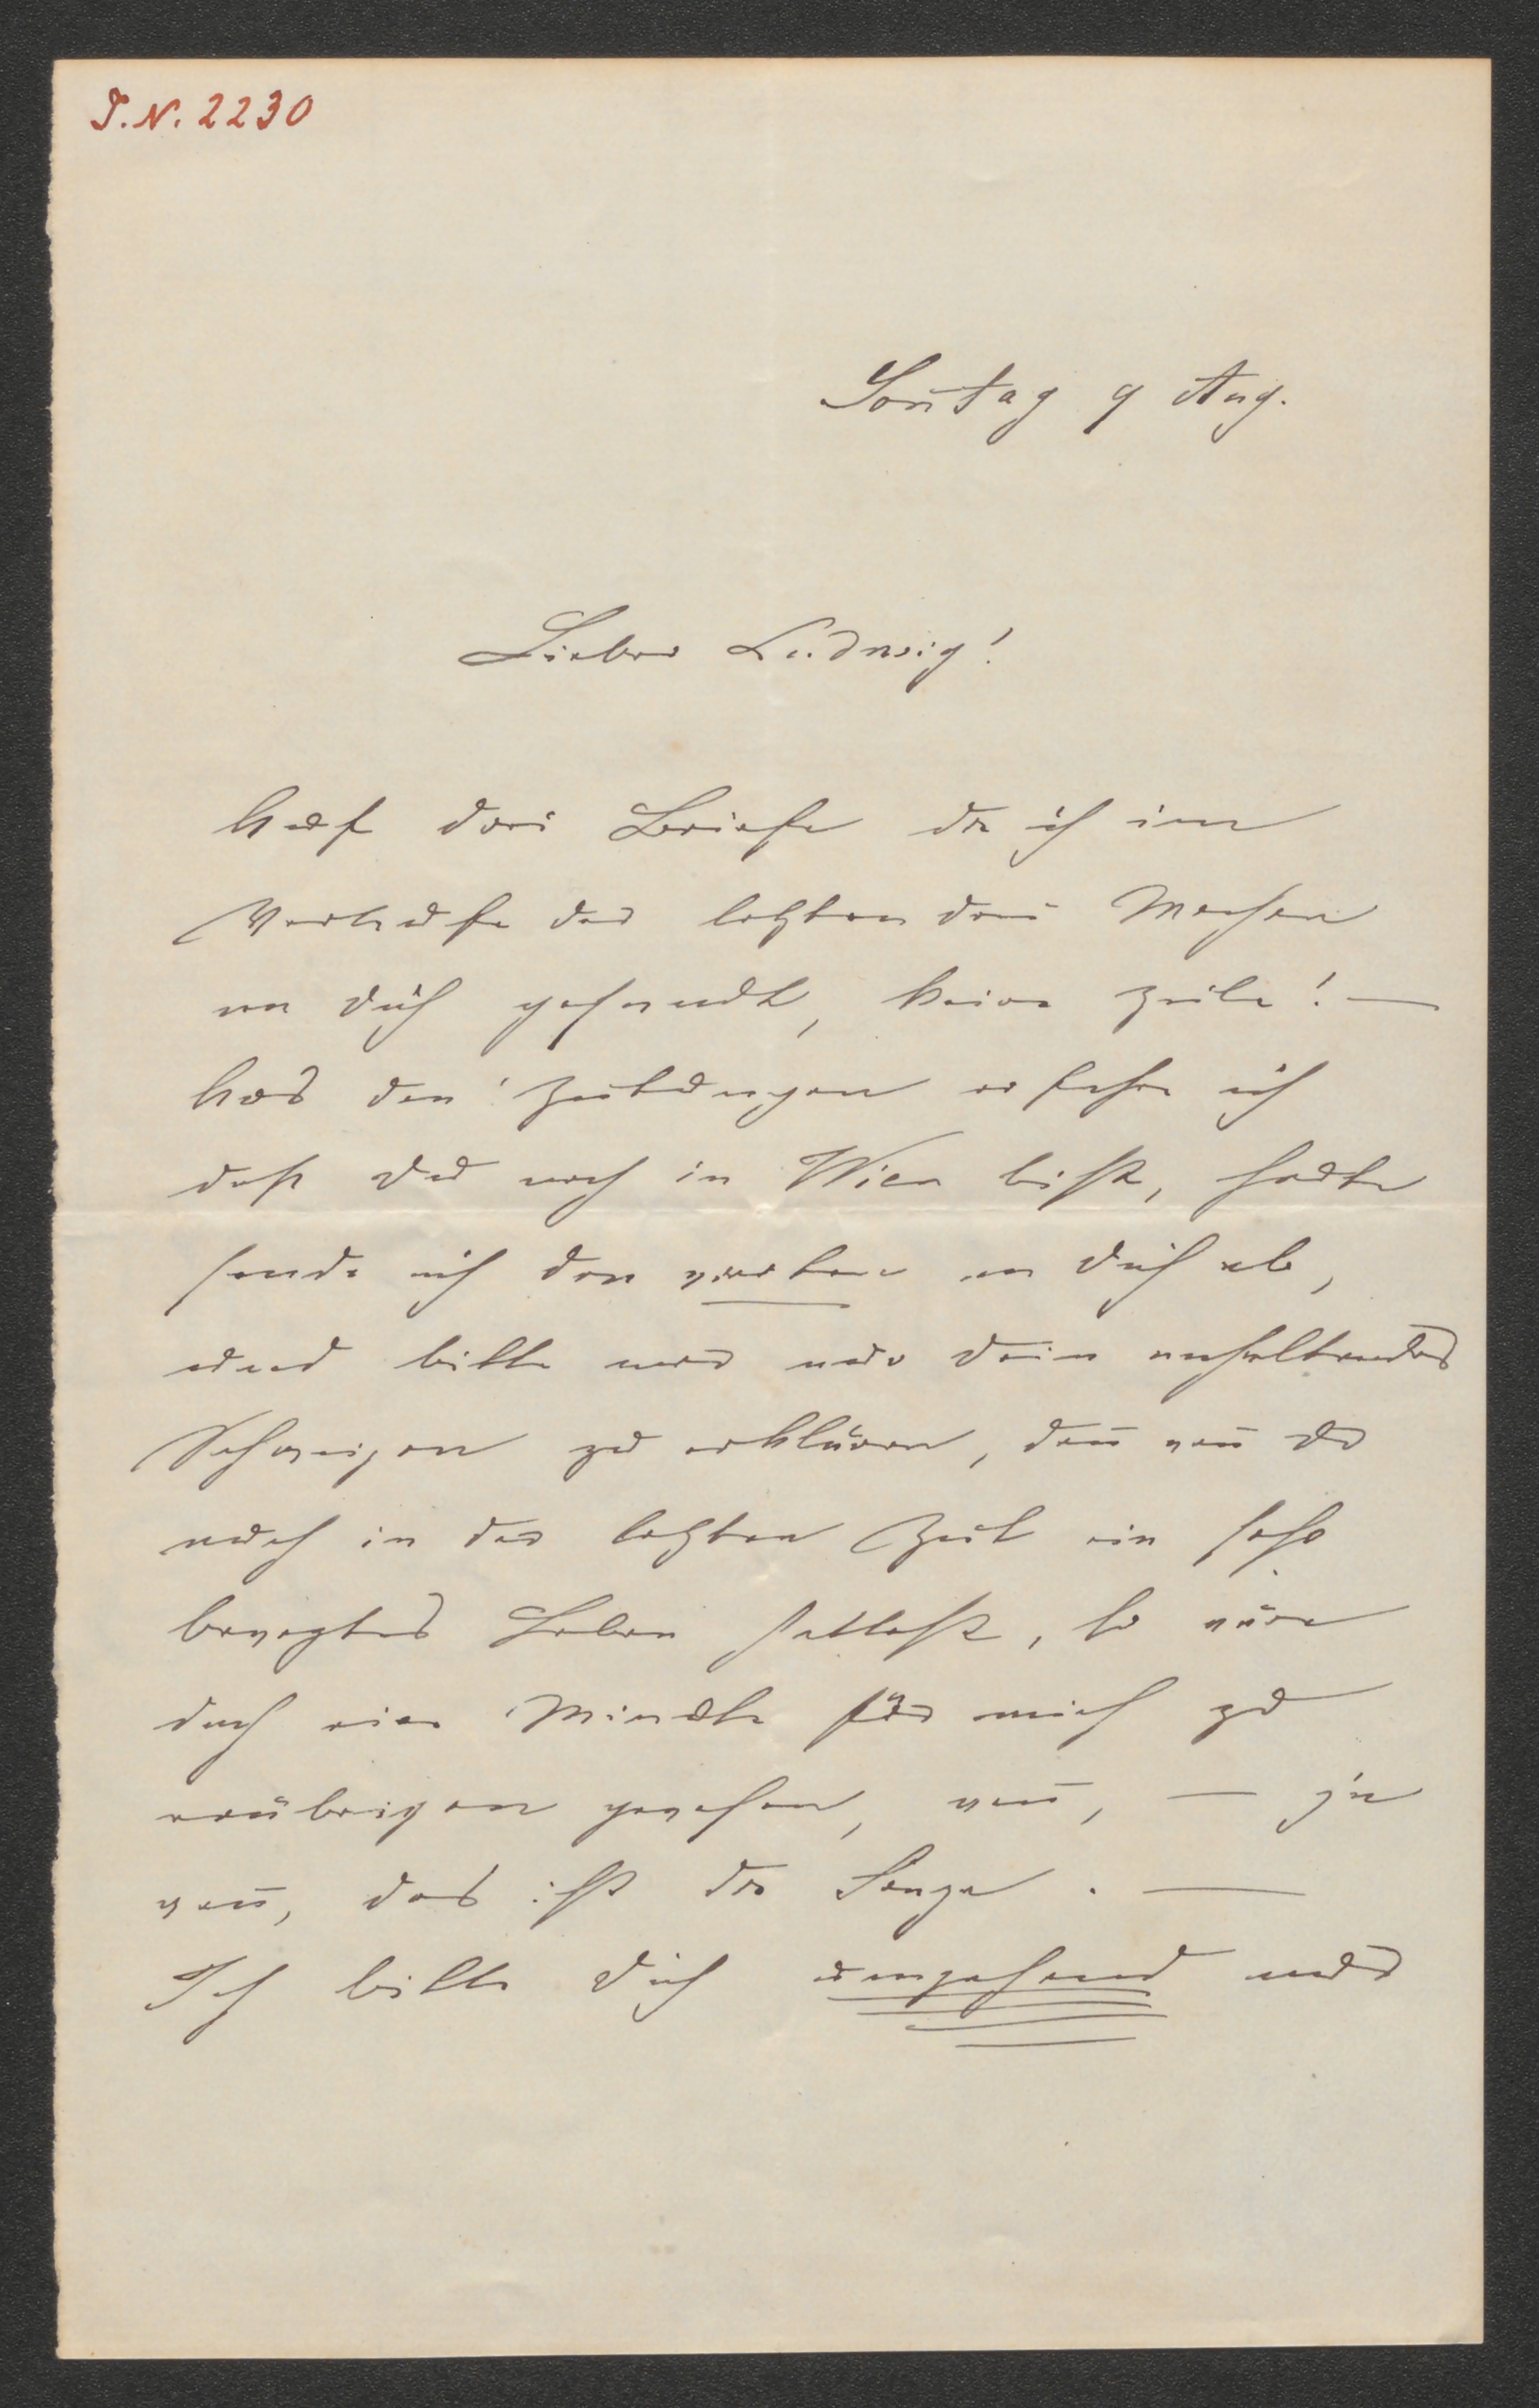 I.N. 2230
Son̄tag 9 Aug.
Lieber Ludwig!
Auf drei Briefe die ich im
Verlaufe der letzten drei Wochen
an dich gesandt, keine Zeile! —
Aus den Zeitungen erfahre ich
dass Du noch in Wien bist, heute
sende ich den vierten an dich ab,
und bitte mir nur dein anhaltendes
Schweigen zu erklären, den̄ wen̄ du
auch in der letzten Zeit ein sehr
bewegtes Leben hattest, so wäre
doch eine Minute für mich zu
erübrigen gewesen, wen̄, — ja
wen̄, das ist die Frage. —
Ich bitte dich umgehend mir